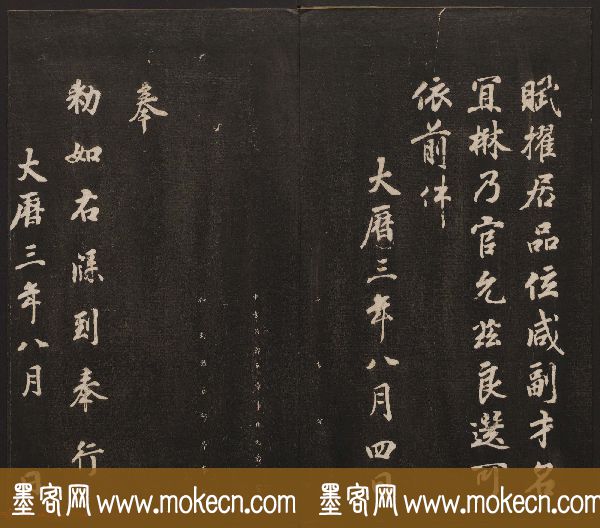 賦擢居品位咸副才名
冝楙乃官允茲良選可
依前件
大曆三年八月四日
奉
勅如右牒到奉行
大曆三年八月 日
墨客网 www.mokecn.com 墨客网 www.mokecn.com